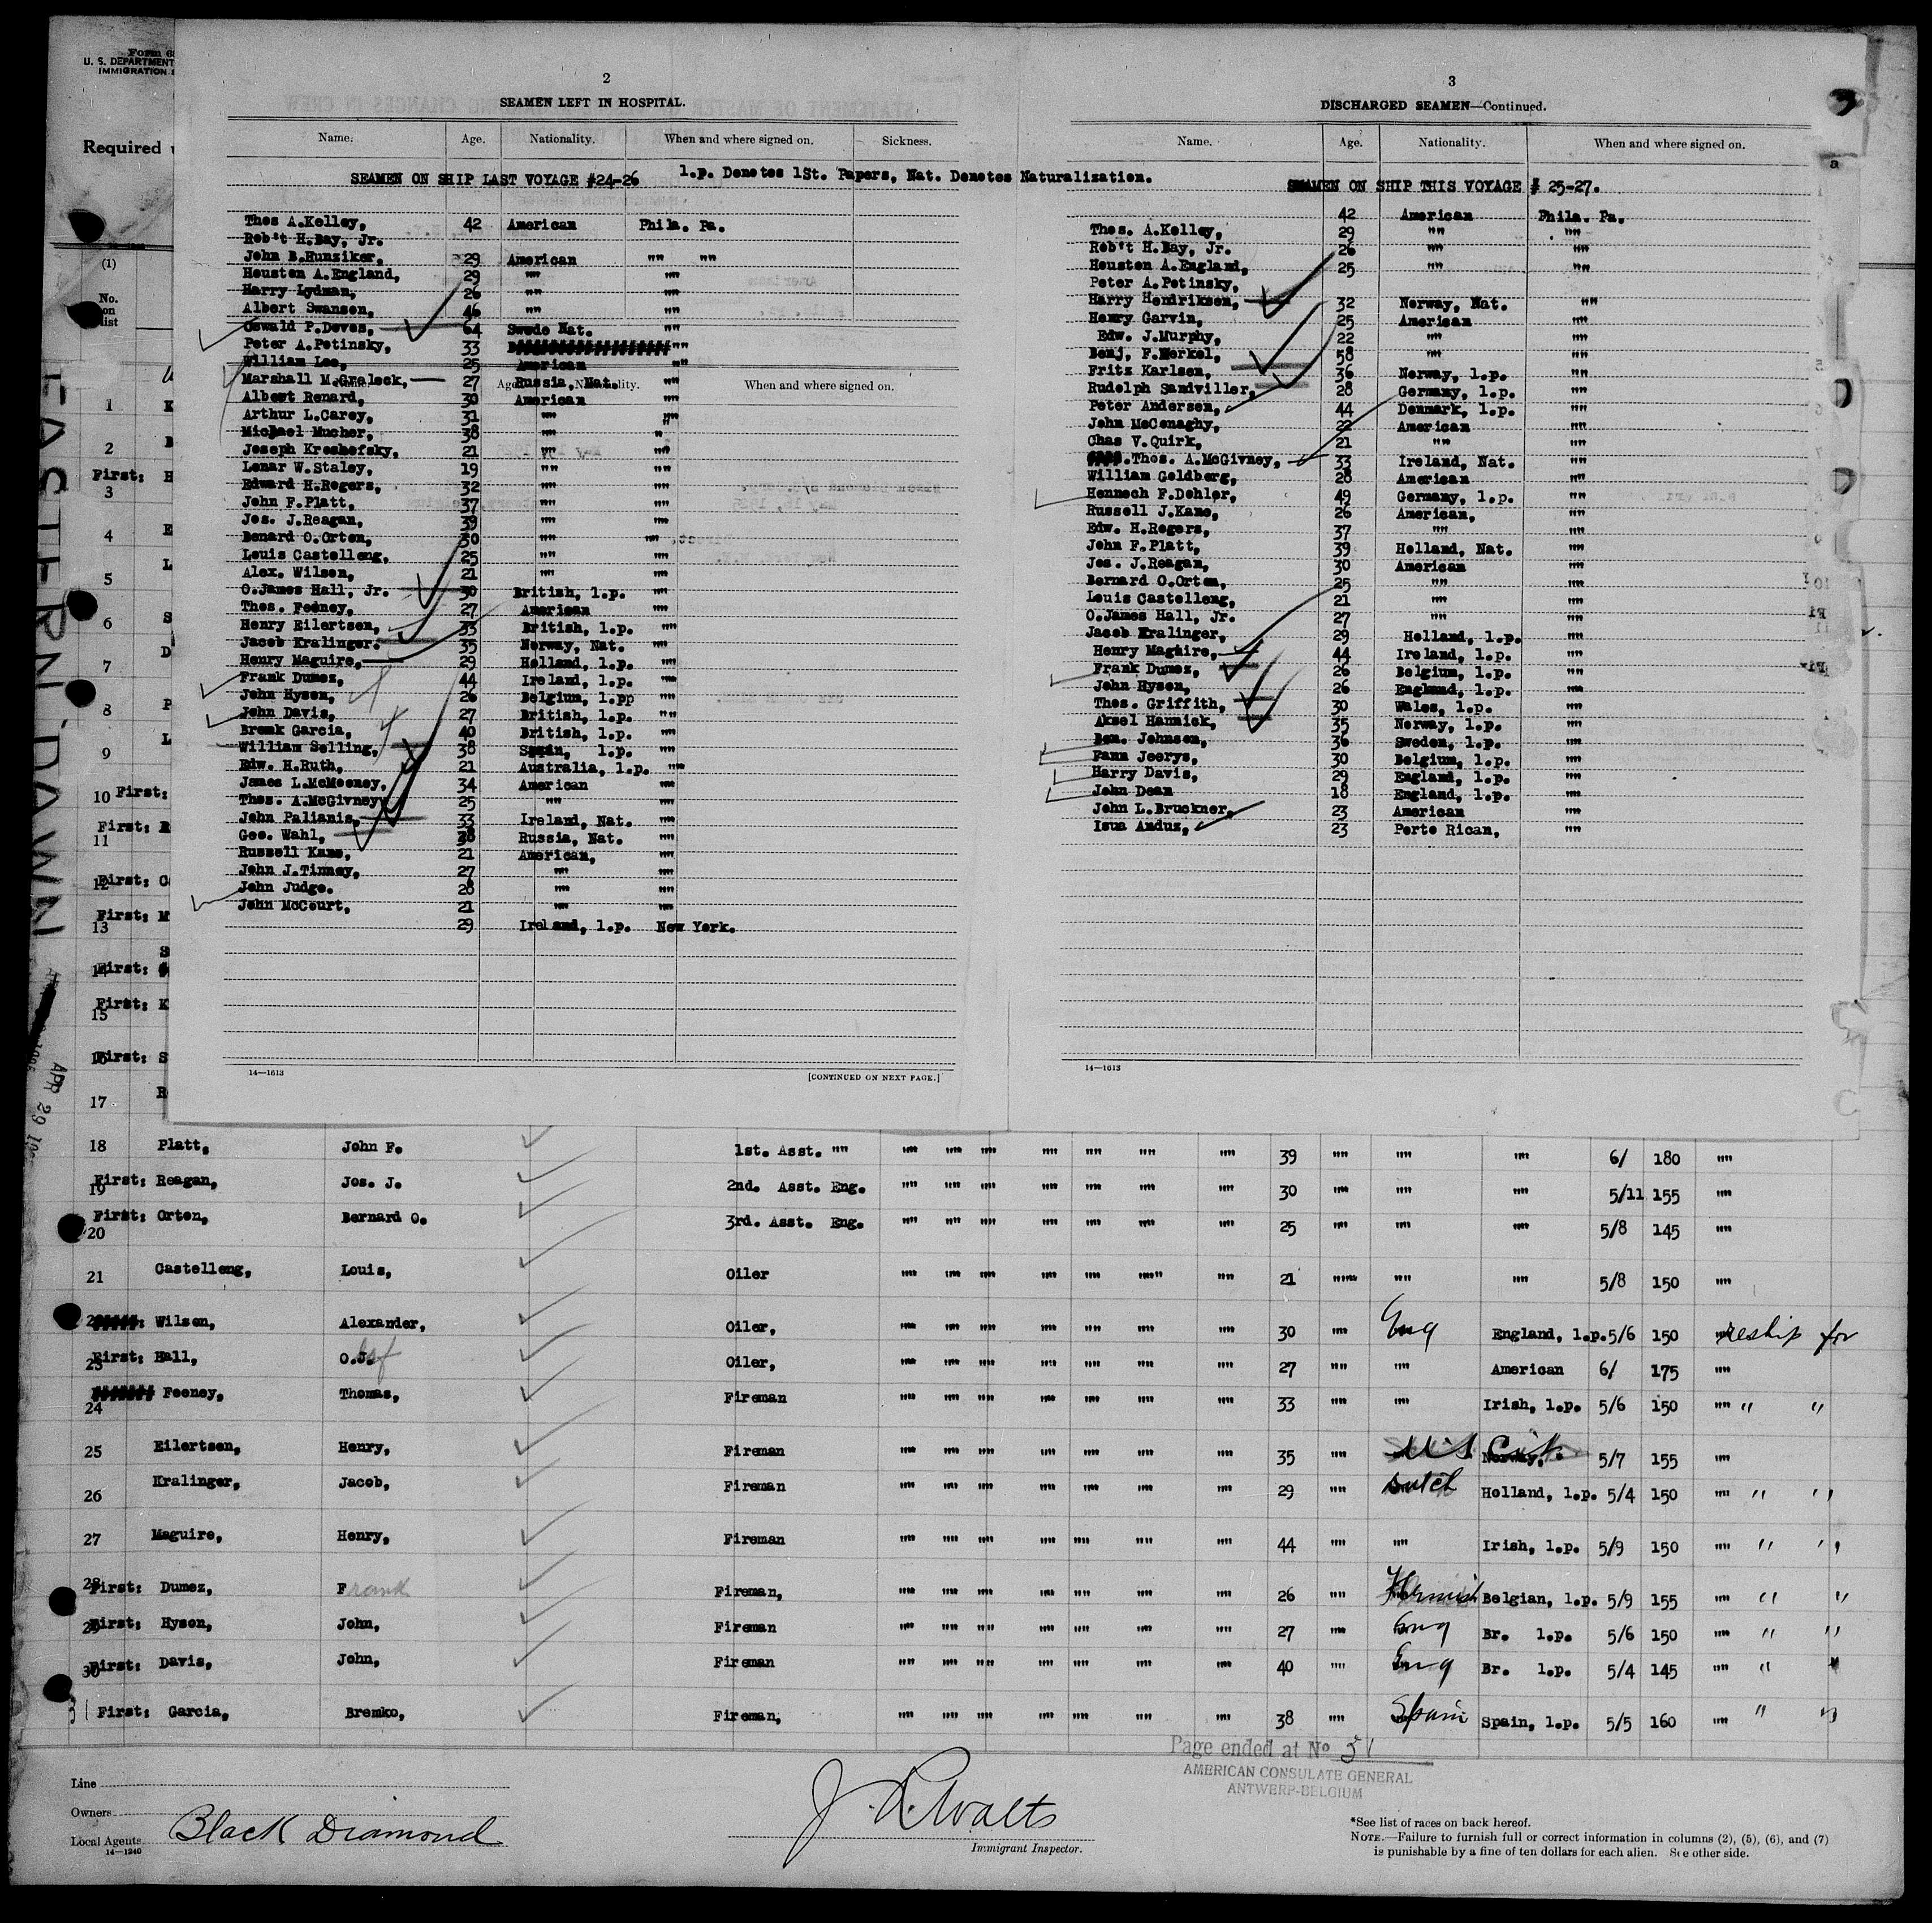 Form 68
U. S. DEPARTMENT
IMMIGRATION
Required
(1)
No. on list
EASTERN DAWN
APR 29
2
SEAMEN LEFT IN HOSPITAL.
Name. Age. Nationality. When and where signed on. Sickness.
SEAMEN ON SHIP LAST VOYAGE #24-26 l.p. Denotes 1St. Papers, Nat. Denotes Naturalization.
Thos A.Kelley, 42 American Phila. Pa.
Rob't H.Bay, Jr.
John B.Hunziker, 29 American "" ""
Houston A.England, 29 "" ""
Harry Lydman, 26 "" ""
Albert Swansen, 46 "" ""
Oswald P.Doves, 64 Swede Nat. ""
Peter A.Potinsky, 33 ""
William Lee, 25 American ""
Marshall M.Grelock, 27 Russia, Nat. ""
Name. Age. Nationality. When and where signed on.
Albert Renard, 30 American ""
Arthur L.Carey, 31 "" ""
Michael Mucher, 38 "" "
Joseph Kreshefsky, 21 "" ""
Lenar W.Staley, 19 "" ""
Edward H.Rogers, 32 "" ""
John F.Platt, 37 "" ""
Jos. J.Reagan, 39 "" ""
Benard O.Orton, 30 "" ""
Louis Castelleng, 25 "" ""
Alex. Wilson, 21 "" ""
O.James Hall, Jr. 30 British, l.p. ""
Thos. Feeney, 27 American ""
Henry Eilertsen, 33 British, l.p. ""
Jacob Kralinger. 35 Norway, Nat. ""
Henry Maguire, 29 Holland, l.p. ""
Frank Dumez, 44 Ireland, l.p. ""
John Hyson, 26 Belgium, l.pp ""
John Davis, 27 British, l.p. ""
Bremk Garcia, 40 British, l.p. ""
William Selling, 38 Spain, l.p. ""
Edw. H.Ruth, 21 Australia, l.p. ""
James L.McMeeney, 34 American ""
Thos. A.McGivney, 25 "" ""
John Palianis, 33 Ireland, Nat. ""
Geo. Wahl, 38 Russia, Nat. ""
Russell Kane, 21 American, ""
John J.Tinney, 27 "" ""
John Judge. 28 "" ""
John McCourt, 21 "" ""
29 Ireland, l.p. New York.
14—1613 [CONTINUED ON NEXT PAGE.]
3
DISCHARGED SEAMEN—Continued.
Name. Age. Nationality. When and where signed on.
SEAMEN ON SHIP THIS VOYAGE # 25-27.
42 American Phila. Pa.
Thos. A.Kelley, 29 "" ""
Rob't H.Bay, Jr. 26 "" ""
Houston A.England, 25 "" ""
Peter A.Potinsky,
Harry Hendriksen, 32 Norway, Nat. ""
Henry Garvin, 25 American ""
Edw. J.Murphy, 22 "" ""
Benj, F.Merkel, 58 "" ""
Fritz Karlsen, 36 Norway, l.p. ""
Rudolph Sandviller, 28 Germany, l.p. ""
Peter Andersen, 44 Denmark, l.p. ""
John McConaghy, 22 American ""
Chas V.Quirk, 21 "" ""
Thos. A.McGivney, 33 Ireland, Nat. ""
William Goldberg, 28 American ""
Hennoch F.Dohler, 49 Germany, l.p. ""
Russell J.Kane, 26 American, ""
Edw. H.Rogers, 37 "" ""
John F.Platt, 39 Holland, Nat. ""
Jos. J.Reagan, 30 American ""
Bernard O.Orton, 25 "" ""
Louis Castelleng, 21 "" ""
O.James Hall, Jr. 27 "" ""
Jacob Kralinger, 29 Holland, l.p. ""
Henry Maguire, 44 Ireland, l.p. ""
Frank Dumez, 26 Belgium, l.p. ""
John Hyson, 26 England, l.p. ""
Thos. Griffith, 30 Wales, l.p. ""
Aksel Hannick, 35 Norway, l.p. ""
Ben. Johnson, 36 Sweden, l.p. ""
Fann Jeerys, 30 Belgium, l.p. ""
Harry Davis, 29 England, l.p. ""
John Dean 18 England, l.p. ""
John L.Bruckner, 23 American ""
Isua Anduz, 23 Porto Rican, ""
14—1613
1
2
First:
3
4
5
6
7
8
9
10 First:
First:
11
12 First:
First:
13
14 First:
First:
15
16 First:
17
18 Platt, John F. 1st. Asst. "" "" "" "" "" "" "" "" 39 "" "" "" 6/ 180 ""
19 First: Reagan, Jos. J. 2nd. Asst. Eng. "" "" "" "" "" "" "" 30 "" "" "" 5/11 155 ""
20 First: Orton, Bernard O. 3rd. Asst. Eng. "" "" "" "" "" "" "" 25 "" "" "" 5/8 145 ""
21 Castelleng, Louis, Oiler "" "" "" "" "" "" "" 21 "" "" "" 5/8 150 ""
22 Wilson, Alexander, Oiler, "" "" "" "" "" "" "" 30 "" Eng England, l.p. 5/6 150 reship for
23 First: Hall, O.J. Oiler, "" "" "" "" "" "" "" 27 "" "" American 6/ 175 ""
24 Feeney, Thomas, Fireman "" "" "" "" "" "" "" 33 "" "" Irish, l.p. 5/6 150 "" " "
25 Eilertsen, Henry, Fireman "" "" "" "" "" "" "" 35 "" U.S. Cit. Norway, 5/7 155 ""
26 Kralinger, Jacob, Fireman "" "" "" "" "" "" "" 29 "" Dutch Holland, l.p. 5/4 150 "" " "
27 Maguire, Henry, Fireman "" "" "" "" "" "" "" 44 "" "" Irish, l.p. 5/9 150 "" " "
28 First: Dumez, Frank Fireman, "" "" "" "" "" "" "" 26 "" Flemish Belgian, l.p. 5/9 155 "" " "
29 First: Hyson, John, Fireman "" "" "" "" "" "" "" 27 "" Eng Br. l.p. 5/6 150 "" " "
30 First: Davis, John, Fireman "" "" "" "" "" "" "" 40 "" Eng Br. l.p. 5/4 145 "" " "
31 First: Garcia, Bremko, Fireman, "" "" "" "" "" "" "" 38 "" Spain Spain, l.p. 5/5 160 "" " "
Page ended at No 31
AMERICAN CONSULATE GENERAL
ANTWERP-BELGIUM
Line
Owners
Local Agents Black Diamond
14—1240
Immigrant Inspector.
*See list of races on back hereof.
NOTE.—Failure to furnish full or correct information in columns (2), (5), (6), and (7)
is punishable by a fine of ten dollars for each alien. See other side.